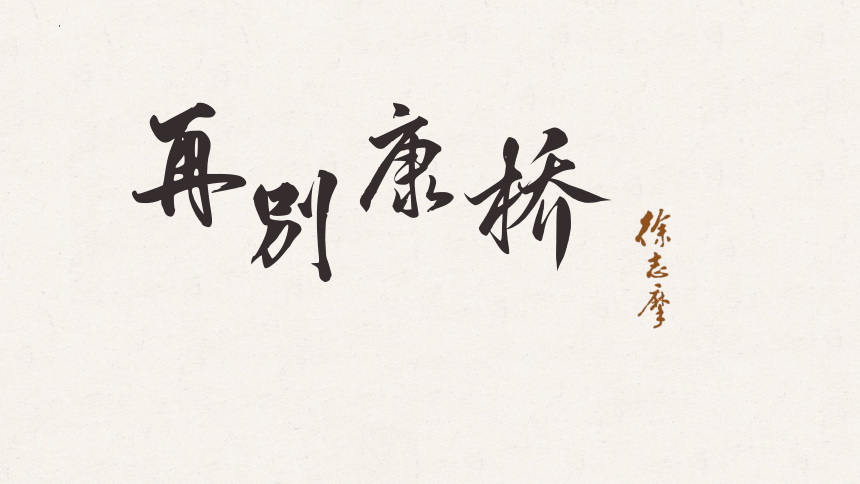 再别康桥
徐志摩